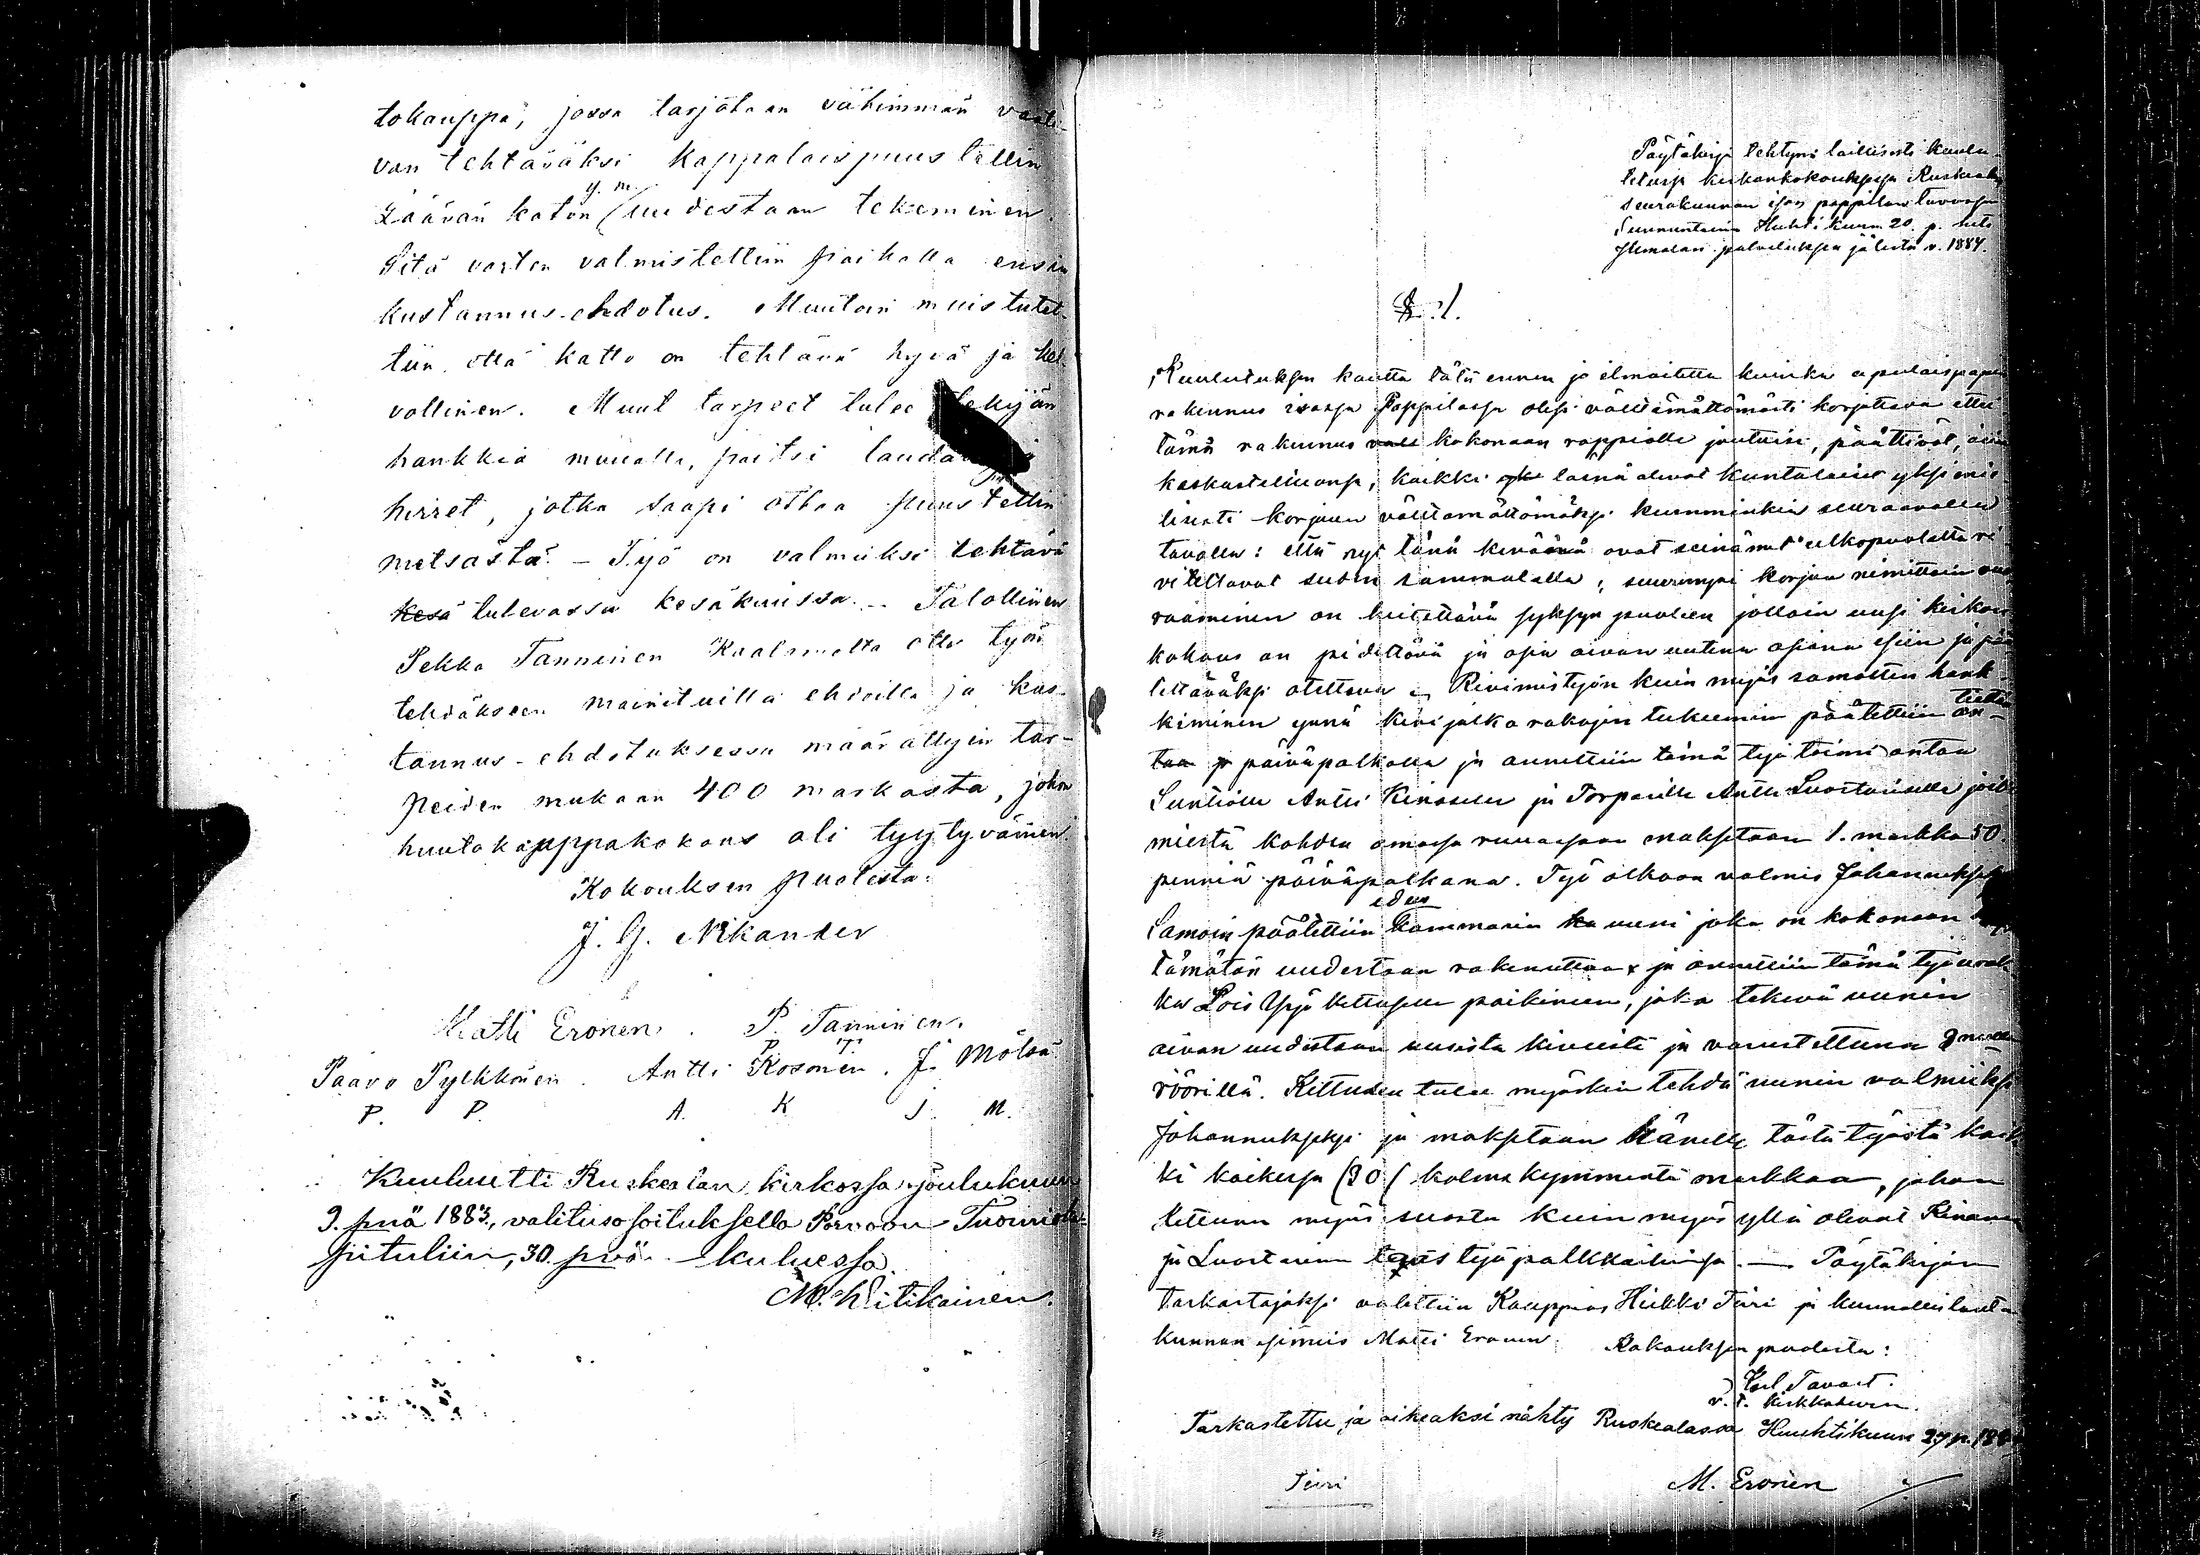 tokauppa, jossa tarjotaan vähimmän vaati-
van tehtäväksi Kappalaispuustellin
Läävän katon uudestaan tekeminen.
y. m.
Sitä varten valmistettiin paikalla ensin
kustannus-ehdotus. Muutoin muistutet-
tiin, että katto on tehtävä hyvä ja kel-
vollinen. Muut tarpeet tulee tekijän
hankkia muualta, paitsi laudat ja
hirret, jotka saapi ottaa puustellin
metsästä. - Työ on valmiiksi tehtävä
kesä tulevassa kesäkuussa. - Talollinen
Pekka Tanninen Kaalamolta otti työn
tehdäkseen mainituilla ehdoilla ja kus-
tannus-ehdotuksessa määrättyin tar-
peiden mukaan 400 markasta, johon
huutokauppakokous oli tyytyväinen.
Kokouksen puolesta:
J. G. Nikander
Matti Eronen. P. Tanninen.
P. T.
Paavo Pylkkönen. Antti Kosonen. J. Mölsä
P. P. A. K J. M.
Kuuluutti Ruskealan kirkossa joulukuun
9. pnä 1883, valitusosoituksella Porvoon Tuomio-
pituliin, 30. pvä. kuluessa.
M. Witikainen.
Pöytäkirja tehtynä laillisesti kuulu-
tetussa kirkonkokouksessa Ruskealan
seurakunnan ison pappilan tuvassa
Sunnuntaina Huhtikuun 20. p. heti
Jumalan palveluksen jälestä v. 1884.
§. 1.
Kuulutuksen kautta tätä ennen jo ilmoitettu kuinka apulaispapin
rakennus isossa Pappilassa olisi välttämättömästi korjattava ettei
tämä rakennus kokonaan rappiolle joutuisi, päättivät, asiaa
keskusteltuansa, kaikki läsnä olevat kuntalaiset yksimie-
lisesti korjuun välttämättömäksi kumminkin seuraavalla
tavalla: että nyt tänä keväänä ovat seinämet ulkopuolelta ri-
vittävät suden sammalella; suurempi korjuu nimittäin
vaaminen on heitettävä syksyn puoleen jolloin uusi kirkon
kokous on pidettävä ja asia aivan uutena asiana esiin ja pää-
tettäväksi otettava. Rivimistyön kuin myös samalten hank-
kiminen ynnä kivijalka rakojen tukkiminen päätettiin
päiväpalkalla ja annettiin tämä työ toimi antaa
Suntiolle Antti Kinoselle ja Torparille Antti Luostariselle joille
miestä kohden omassa ruuassaan maksetaan 1. markka 50.
penniä päiväpalkana. Työ olkoon valmis Johannukseksi
Samoin päätettiin edus kammarin uuni joka on kokonaan
tämätön uudestaan rakennuttaa ja annettiin tämä työ
Lois Yrjö Kettusen paikimeen, joka tekevä uunin
aivan uudestaan uusista kivistä ja varustettuna
röörillä. Kettusen tulee myöskin tehdä uunin valmiiksi
Johannukseksi ja maksetaan hänelle tästä työstä kaik-
ki kaikessa (30) kolmekymmentä markkaa, johon
Kettunen myös suostu kuin myös yllä olevat Kinonen
ja Luostarinen työpalkkaihinsa. — Pöytäkirjan
tarkastajaksi valittiin Kauppias Heikki Siiri ja kunnallislauta-
kunnan esimies Matti Eronen. Kokouksen puolesta:
Karl Tavast.
v. t. kirkkoherra.
Tarkastettu ja oikeaksi nähty Ruskealassa Huhtikuun 27 p. 1884
Siiri M. Eronen